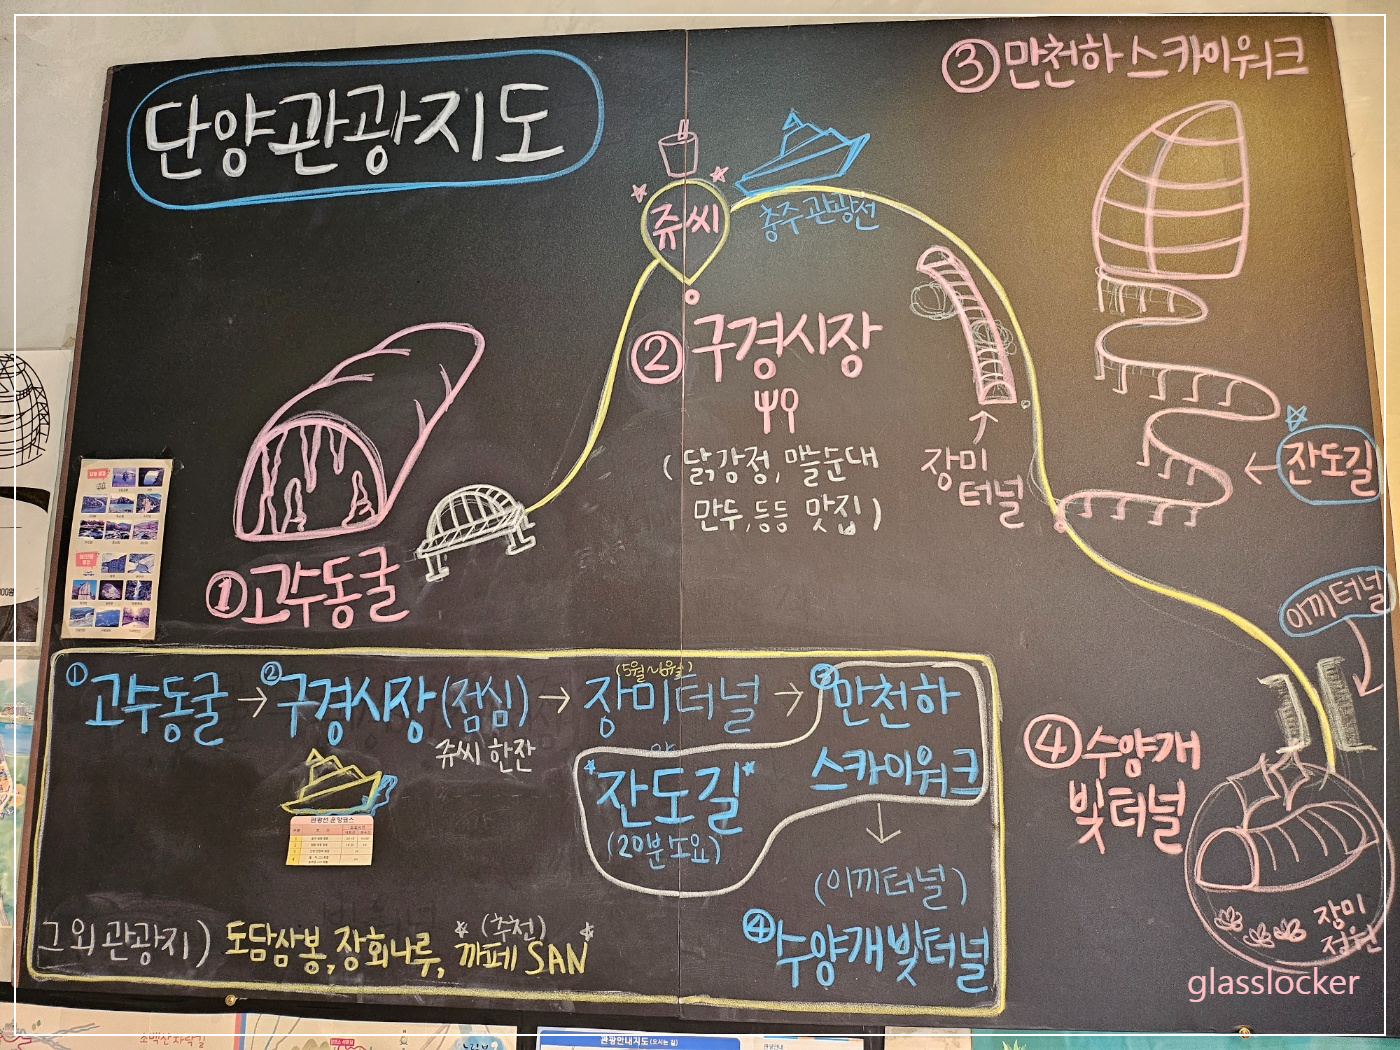 단양관광지도
③만천하 스카이워크
쥬씨
충주 관광선
②구경시장
(닭강정, 마늘순대
만두,등등 맛집)
장미
터널
잔도길
①고수동굴
이끼터널
④수양개
빛터널
장미
정원
①고수동굴→②구경시장(점심)→장미터널→③만천하
스카이워크
쥬씨 한잔
잔도길
(20분 소요)
관광선 운항코스
(이끼터널)
④수양개빛터널
그 외 관광지) 도담삼봉, 장회나루, 까페 SAN
(추천)
glasslocker
소백산자락길
관광안내지도(오시는 길)
관광안내